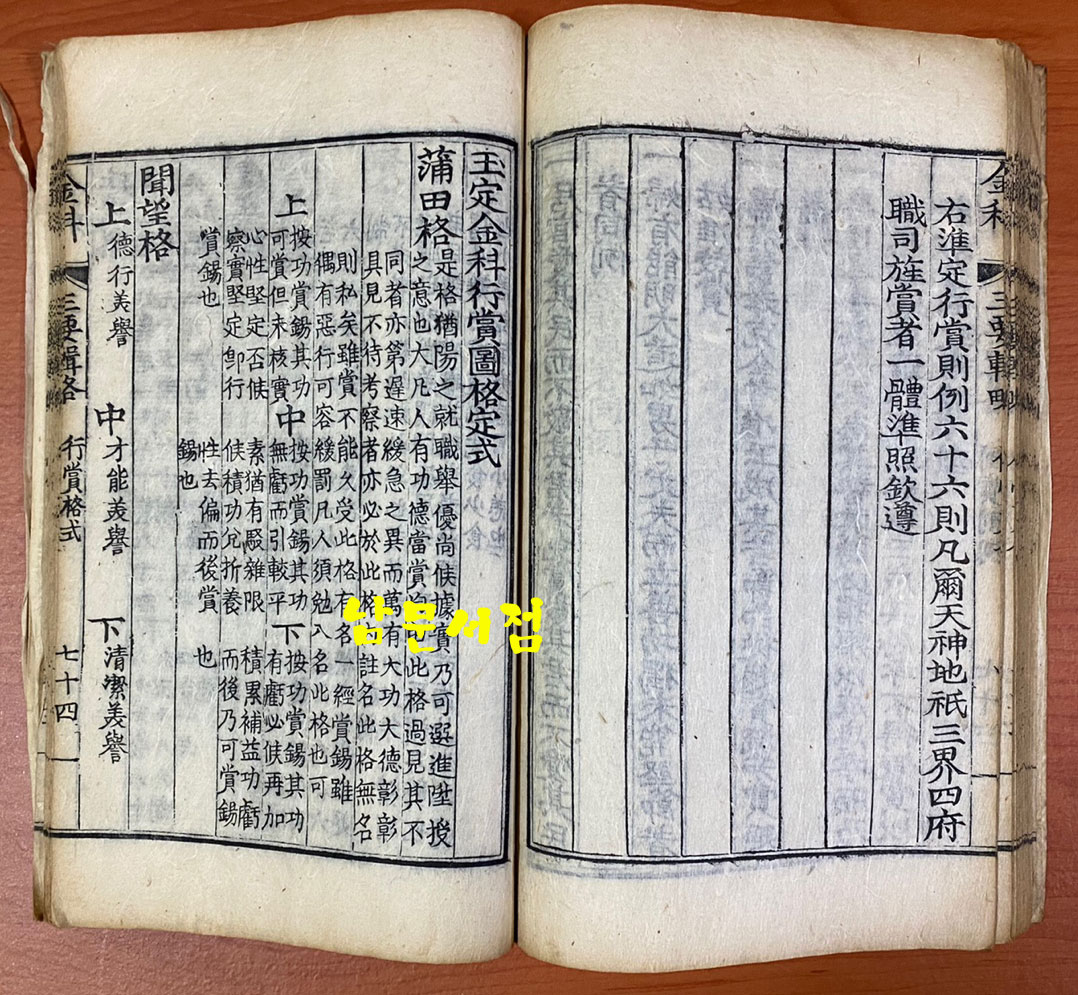 金科 三要輯略
右準定行賞則例六十六則凡爾天神地祇三界四府
職司旌賞者一體準照欽遵
玉定金科行賞圖格定式
蒲田格 是格猶陽之就職舉優尚候據實乃可選進陞授
之意也大凡人有功德當賞此格過見其不
同者亦第遲速緩急之異而萬有大功大德彰彰
具見不待考察者亦必於此格內註名此格無名
則私矣雖賞不能久受此格有名一經賞錫雖
偶有惡行可容緩罰凡人須勉入名此格也可
上 按功賞錫其功
可賞但未核實
心性堅定否候
察實堅定卽行
賞錫也
中 按功賞錫其功
無虧而引較平
素猶有駁雜限
候積功允折養
性去偏而後賞
錫也
下 按功賞錫其功
有虧必候再加
積累補益功虧
而後乃可賞錫
也
聞望格
上 德行美譽 中 才能美譽 下 清潔美譽
金科 三要輯略 行賞格式 七十四
남문서점